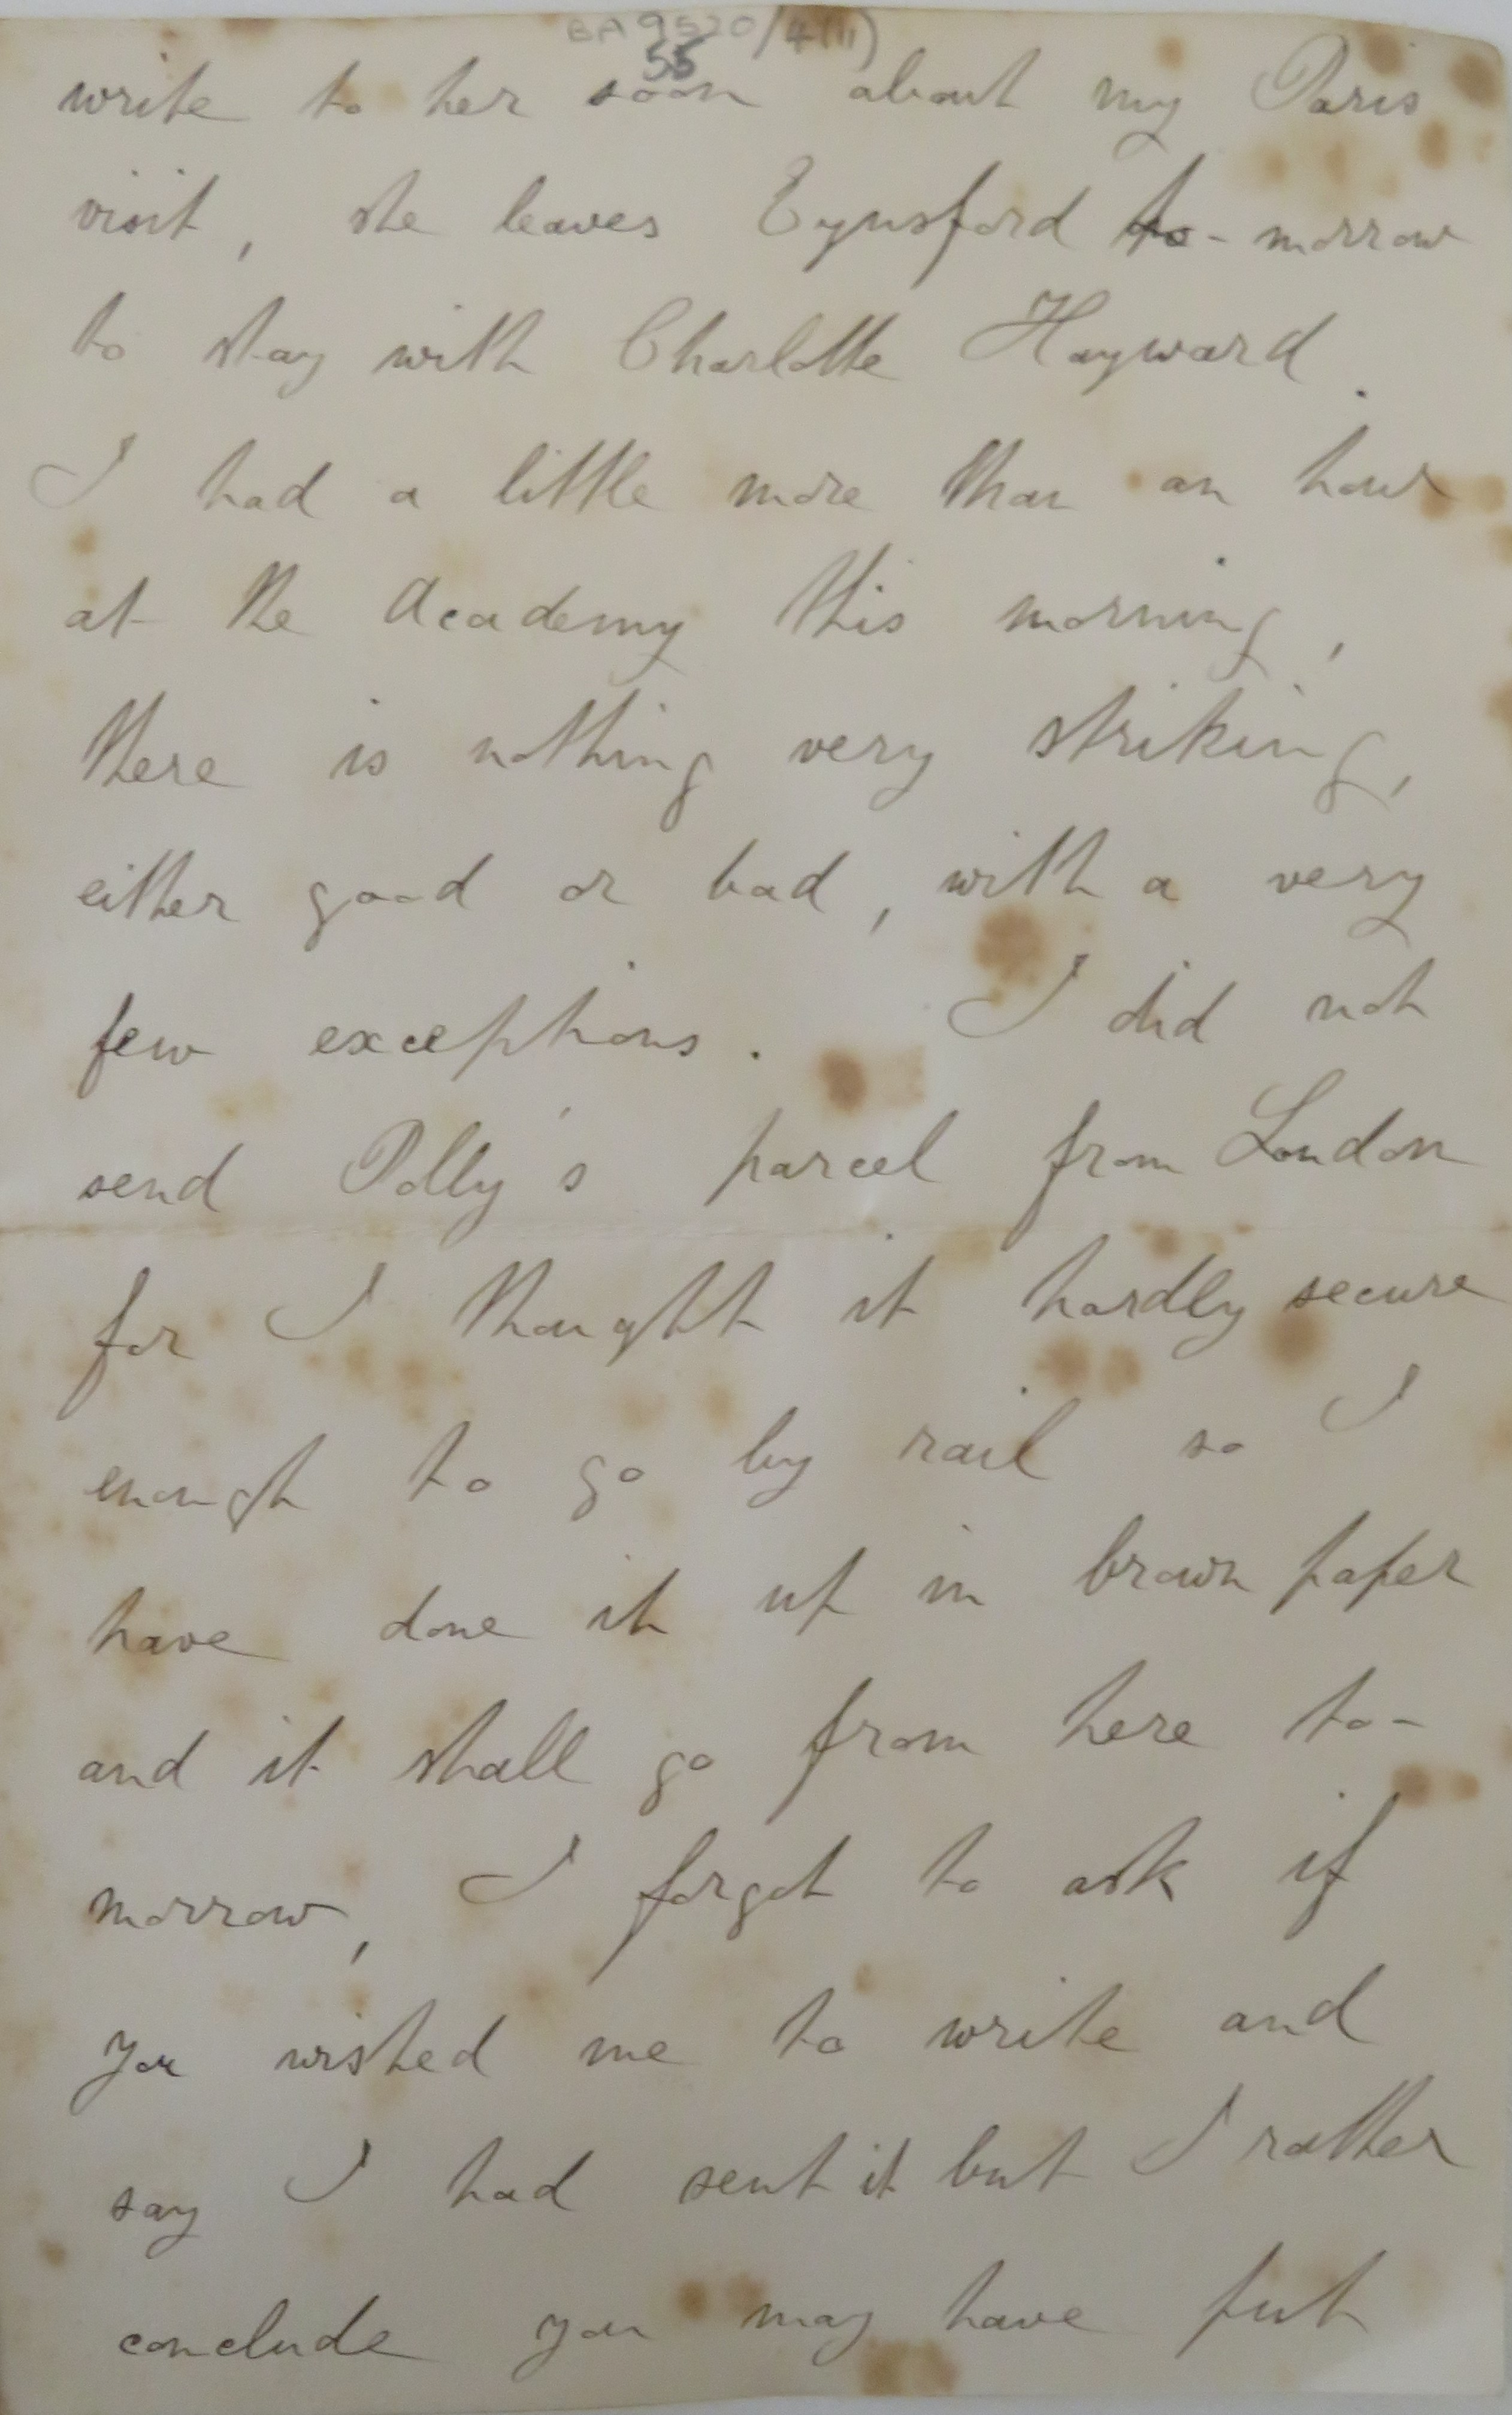 BA9520/4(iii)
55
write to her soon about my Paris
visit, she leaves Eynsford to-morrow
to stay with Charlotte Hayward.
I had a little more than an hour
at the Academy this morning,
there is nothing very striking,
either good or bad, with a very
few exceptions. I did not
send Polly's parcel from London
for I thought it hardly secure
enough to go by rail so I
have done it up in brown paper
and it shall go from here to-
morrow, I forgot to ask if
you wished me to write and
say I had sent it but I rather
conclude you may have put